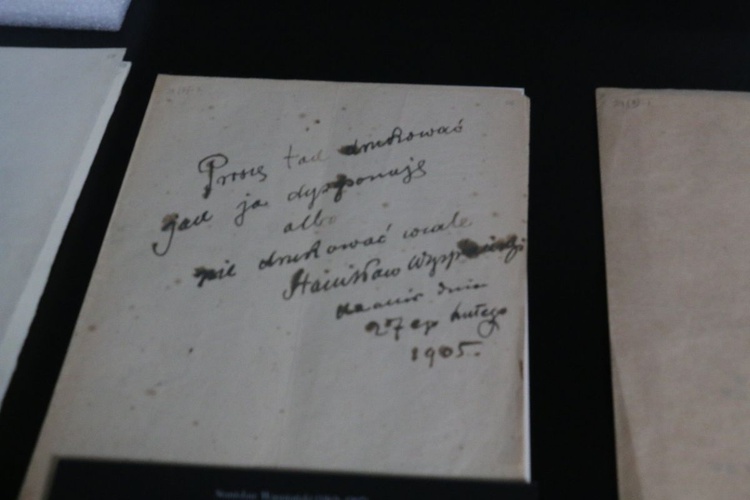 Proszę tak drukować
jak ja dysponuję
albo
nie drukować wcale
Stanisław Wyspiański
dnia
27 go lutego
1905.